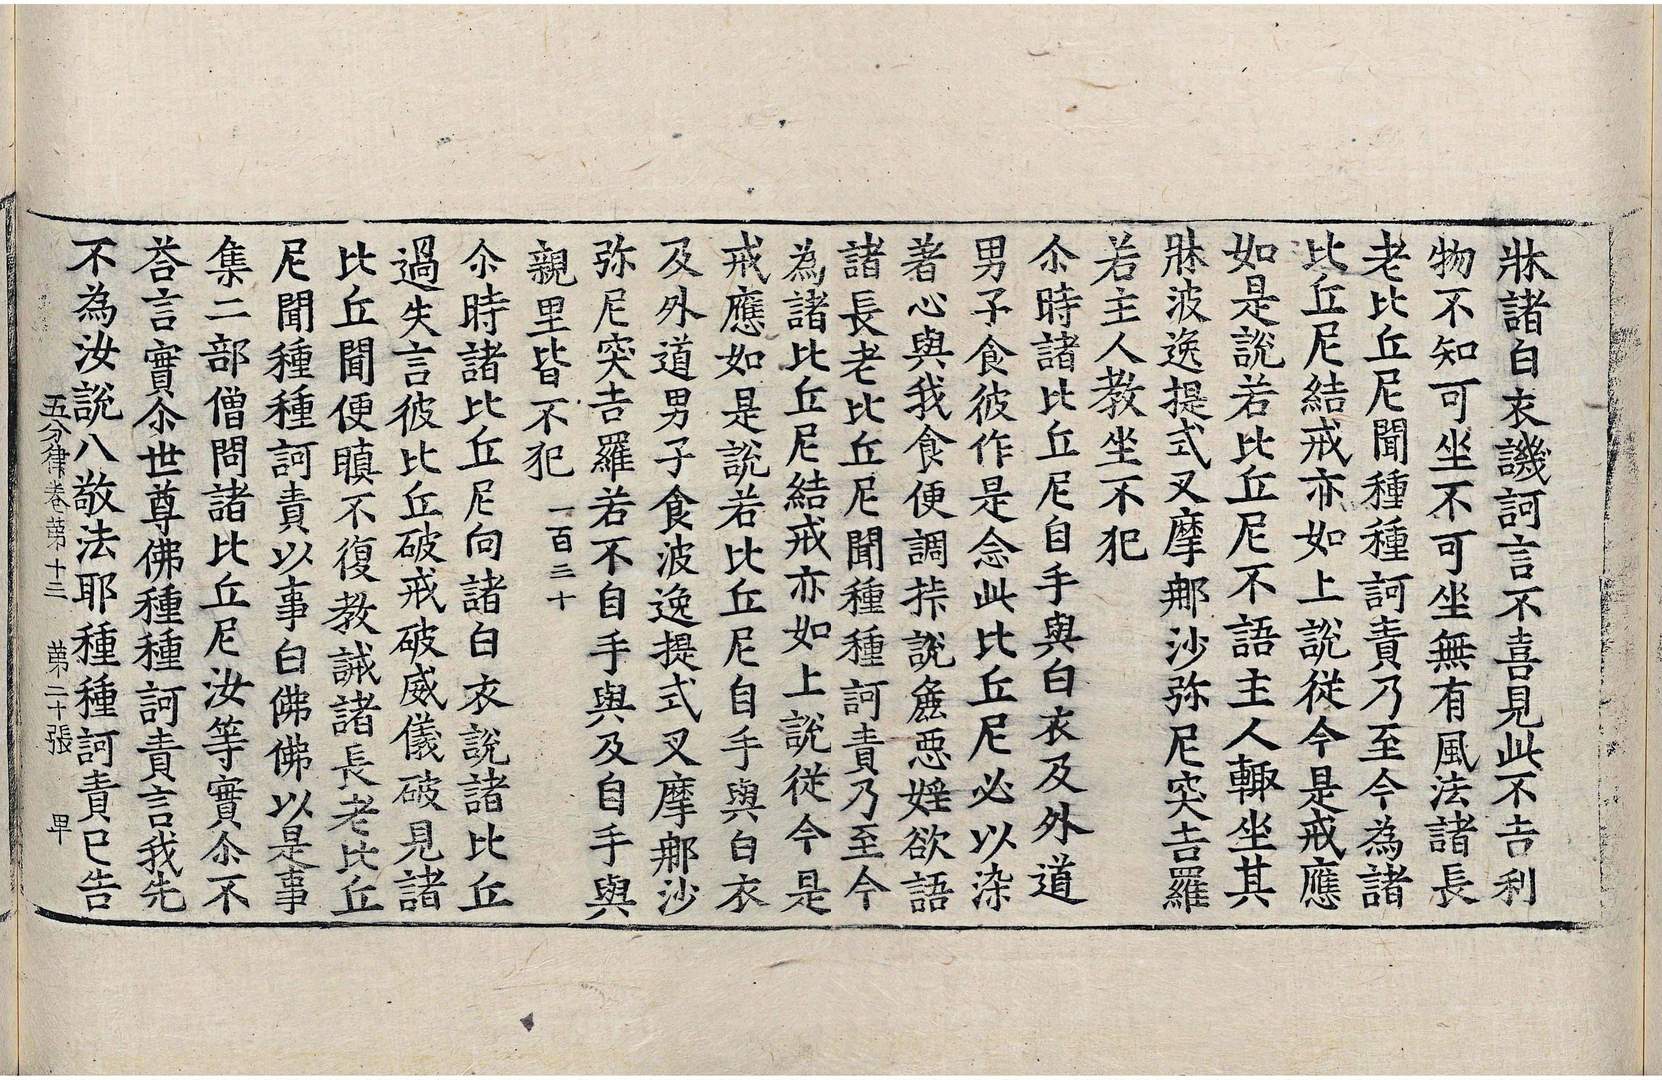 牀諸白衣譏訶言不喜見此不吉利
物不知可坐不可坐無有風法諸長
老比丘尼聞種種訶責乃至今為諸
比丘尼結戒亦如上說從今是戒應
如是說若比丘尼不語主人輙坐其
牀波逸提式叉摩那沙弥尼突吉羅
若主人教坐不犯
尒時諸比丘尼自手與白衣及外道
男子食彼作是念此比丘尼必以染
著心與我食便調𢪛說麁惡婬欲語
諸長老比丘尼聞種種訶責乃至今
為諸比丘尼結戒亦如上說從今是
戒應如是說若比丘尼自手與白衣
及外道男子食波逸提式叉摩那沙
弥尼突吉羅若不自手與及自手與
親里皆不犯一百三十
尒時諸比丘尼向諸白衣說諸比丘
過失言彼比丘破戒破威儀破見諸
比丘聞便瞋不復教誡諸長老比丘
尼聞種種訶責以事白佛佛以是事
集二部僧問諸比丘尼汝等實尒不
荅言實尒世尊佛種種訶責言我先
不為汝說八敬法耶種種訶責已告
五分律卷第十三 第二十張 甲